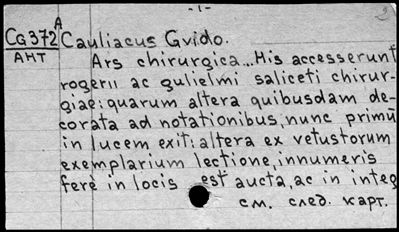 -1-
2
A
Cg372 Cauliacus Gvido.
АНТ
Ars chirurgica... His accesserunt
rogerii ac gulielmi saliceti chirur-
giae: quarum altera quibusdam de-
corata ad notationibus, nunc primū
in lucem exit: altera ex vetustorum
exemplarium lectione, innumeris
ferè in locis est aucta, ac in integ
см. след. карт.